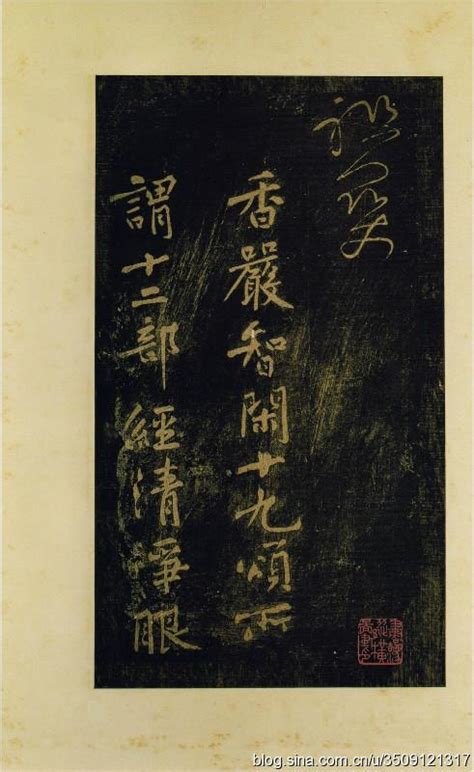 香嚴智閑十九頌所
謂十二部經清淨眼
blog.sina.com.cn/u/3509121317